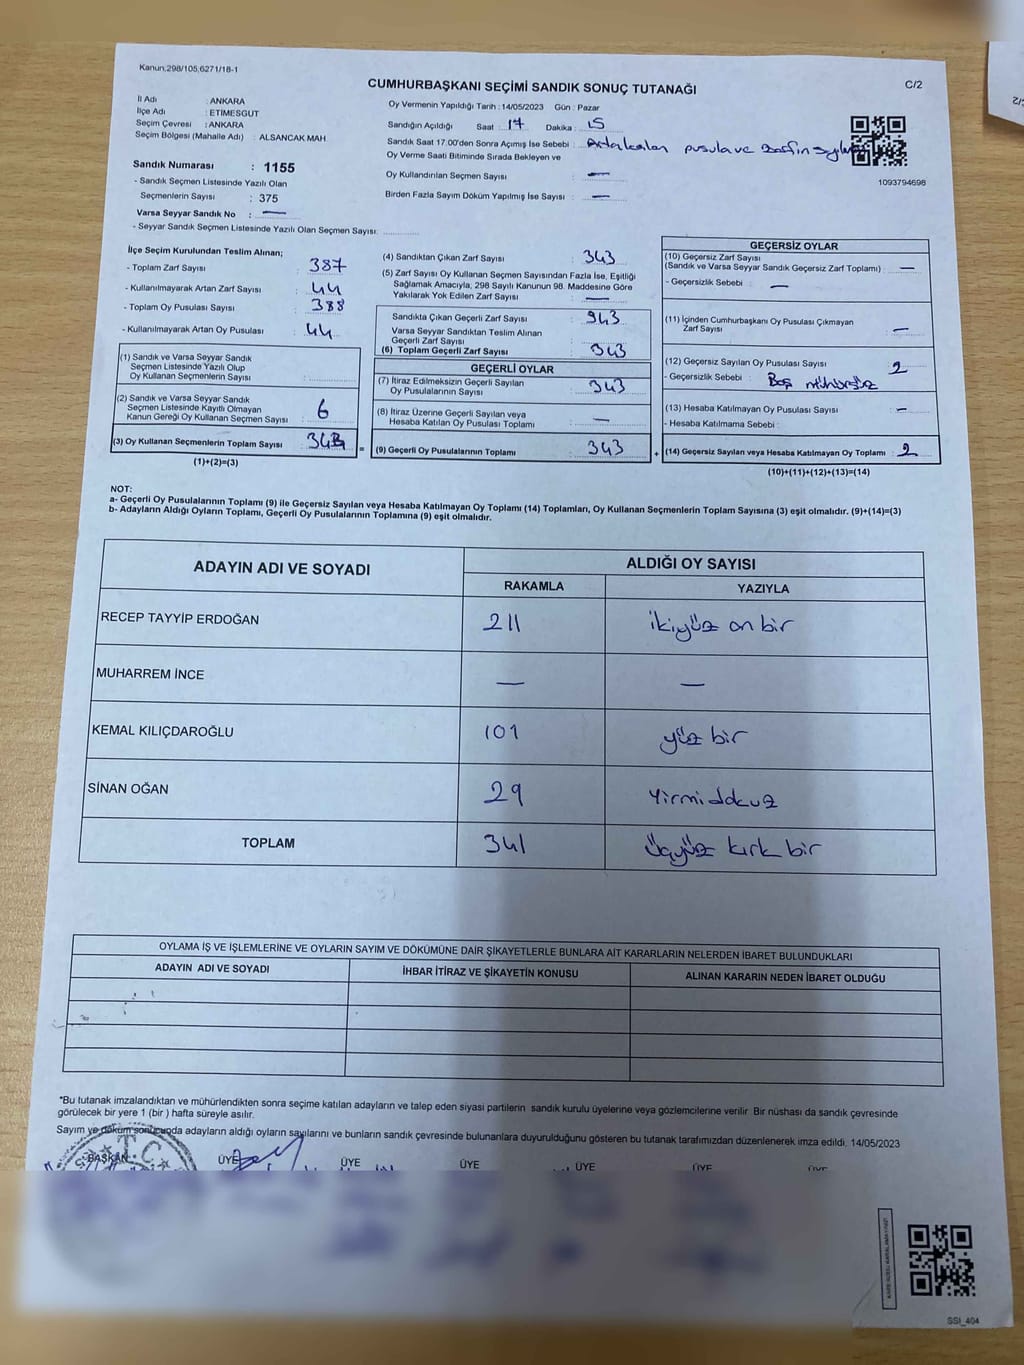 Kanun,298/105,6271/18-1
CUMHURBAŞKANI SEÇİMİ SANDIK SONUÇ TUTANAĞI
C/2
İl Adı : ANKARA
İlçe Adı : ETİMESGUT
Seçim Çevresi : ANKARA
Seçim Bölgesi (Mahalle Adı) : ALSANCAK MAH.
Sandık Numarası : 1155
- Sandık Seçmen Listesinde Yazılı Olan
Seçmenlerin Sayısı : 375
Varsa Seyyar Sandık No : —
- Seyyar Sandık Seçmen Listesinde Yazılı Olan Seçmen Sayısı:
Oy Vermenin Yapıldığı Tarih : 14/05/2023 Gün : Pazar
Sandığın Açıldığı Saat : 17 Dakika : 15
Sandık Saat 17.00'den Sonra Açımış İse Sebebi : Arta kalan pusula ve zarfın
Oy Verme Saati Bitiminde Sırada Bekleyen ve
Oy Kullandırılan Seçmen Sayısı : —
Birden Fazla Sayım Döküm Yapılmış İse Sayısı : —
1093794698
İlçe Seçim Kurulundan Teslim Alınan;
- Toplam Zarf Sayısı : 387
- Kullanılmayarak Artan Zarf Sayısı : 44
- Toplam Oy Pusulası Sayısı : 388
- Kullanılmayarak Artan Oy Pusulası : 44
(1) Sandık ve Varsa Seyyar Sandık
Seçmen Listesinde Yazılı Olup
Oy Kullanan Seçmenlerin Sayısı :
(2) Sandık ve Varsa Seyyar Sandık
Seçmen Listesinde Kayıtlı Olmayan
Kanun Gereği Oy Kullanan Seçmen Sayısı : 6
(3) Oy Kullanan Seçmenlerin Toplam Sayısı : 343
(1)+(2)=(3)
=
(4) Sandıktan Çıkan Zarf Sayısı : 343
(5) Zarf Sayısı Oy Kullanan Seçmen Sayısından Fazla İse, Eşitliği
Sağlamak Amacıyla, 298 Sayılı Kanunun 98. Maddesine Göre
Yakılarak Yok Edilen Zarf Sayısı : —
Sandıkta Çıkan Geçerli Zarf Sayısı : 343
Varsa Seyyar Sandıktan Teslim Alınan
Geçerli Zarf Sayısı :
(6) Toplam Geçerli Zarf Sayısı : 343
GEÇERLİ OYLAR
(7) İtiraz Edilmeksizin Geçerli Sayılan
Oy Pusulalarının Sayısı : 343
(8) İtiraz Üzerine Geçerli Sayılan veya
Hesaba Katılan Oy Pusulası Toplamı : —
(9) Geçerli Oy Pusulalarının Toplamı : 343
+
GEÇERSİZ OYLAR
(10) Geçersiz Zarf Sayısı
(Sandık ve Varsa Seyyar Sandık Geçersiz Zarf Toplamı) : —
- Geçersizlik Sebebi : —
(11) İçinden Cumhurbaşkanı Oy Pusulası Çıkmayan
Zarf Sayısı : —
(12) Geçersiz Sayılan Oy Pusulası Sayısı : 2
- Geçersizlik Sebebi : Boş mühürsüz
(13) Hesaba Katılmayan Oy Pusulası Sayısı : —
- Hesaba Katılmama Sebebi :
(14) Geçersiz Sayılan veya Hesaba Katılmayan Oy Toplamı : 2
(10)+(11)+(12)+(13)=(14)
NOT:
a- Geçerli Oy Pusulalarının Toplamı (9) ile Geçersiz Sayılan veya Hesaba Katılmayan Oy Toplamı (14) Toplamları, Oy Kullanan Seçmenlerin Toplam Sayısına (3) eşit olmalıdır. (9)+(14)=(3)
b- Adayların Aldığı Oyların Toplamı, Geçerli Oy Pusulalarının Toplamına (9) eşit olmalıdır.
ADAYIN ADI VE SOYADI ALDIĞI OY SAYISI
RAKAMLA YAZIYLA
RECEP TAYYİP ERDOĞAN 211 ikiyüz on bir
MUHARREM İNCE — —
KEMAL KILIÇDAROĞLU 101 yüz bir
SİNAN OĞAN 29 Yirmidokuz
TOPLAM 341 Üçyüz kırk bir
OYLAMA İŞ VE İŞLEMLERİNE VE OYLARIN SAYIM VE DÖKÜMÜNE DAİR ŞİKAYETLERLE BUNLARA AİT KARARLARIN NELERDEN İBARET BULUNDUKLARI
ADAYIN ADI VE SOYADI İHBAR İTİRAZ VE ŞİKAYETİN KONUSU ALINAN KARARIN NEDEN İBARET OLDUĞU
*Bu tutanak imzalandıktan ve mühürlendikten sonra seçime katılan adayların ve talep eden siyasi partilerin sandık kurulu üyelerine veya gözlemcilerine verilir. Bir nüshası da sandık çevresinde
görülecek bir yere 1 (bir ) hafta süreyle asılır.
Sayım ve döküm sonucunda adayların aldığı oyların sayılarını ve bunların sandık çevresinde bulunanlara duyurulduğunu gösteren bu tutanak tarafımızdan düzenlenerek imza edildi. 14/05/2023
BAŞKAN ÜYE ÜYE ÜYE ÜYE ÜYE ÜYE
T.C.
SSI_404